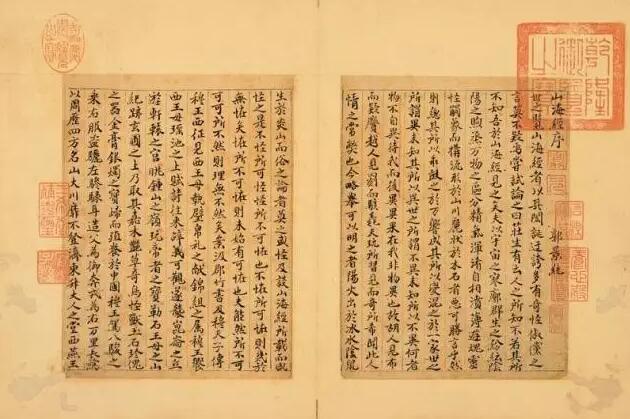 山海經序
郭景純
世之覽山海經者以其閎誕迂誇多有奇怪俶儻之
言莫不疑焉嘗試論之曰莊生有云人之所知不若其所
不知吾於山海經見之矣夫以宇宙之寥廓群生之紛紜陰
陽之煦蒸萬物之區分精氣渾淆自相濆薄遊魂靈
怪觸象而構流形於山川麗狀於木石者惡可勝言乎然
則總其所以乖鼓之於一響成其所以變混之於一象世之
所謂異未知其所以異世之所謂不異未知所以不異何者
物不自異待我而後異異果在我非物異也故胡人見布
而疑黂越人見罽而駭毳夫玩所習見而奇所希聞此人
情之常蔽也今略舉可以明之者陽火出於冰水陰鼠
生於炎山而俗之論者莫之或怪及談山海經所載而咸
怪之是不怪所可怪而怪所不可怪也不怪所可怪則幾於
無怪矣怪所不可怪則未始有可怪也夫能然所不可
可可所不然則理無不然矣案汲郡竹書及穆天子傳
穆王西征見西王母執璧帛之獻錦組之屬穆王饗
西王母瑤池之上賦詩往來辭義可觀遂襲崑崙之丘
遊軒轅之宮眺鍾山之嶺玩帝者之寶勒石王母之山
紀跡玄圃之上乃取其嘉木艷草奇鳥怪獸玉石珍瑰
之器金膏銀燭之寶歸而殖養於中國穆王駕八駿之
乘右服盜驪左驂騄耳造父為御奔戎為右万里長騖
以周歷四方名山大川靡不登濟東升大人之堂西燕王